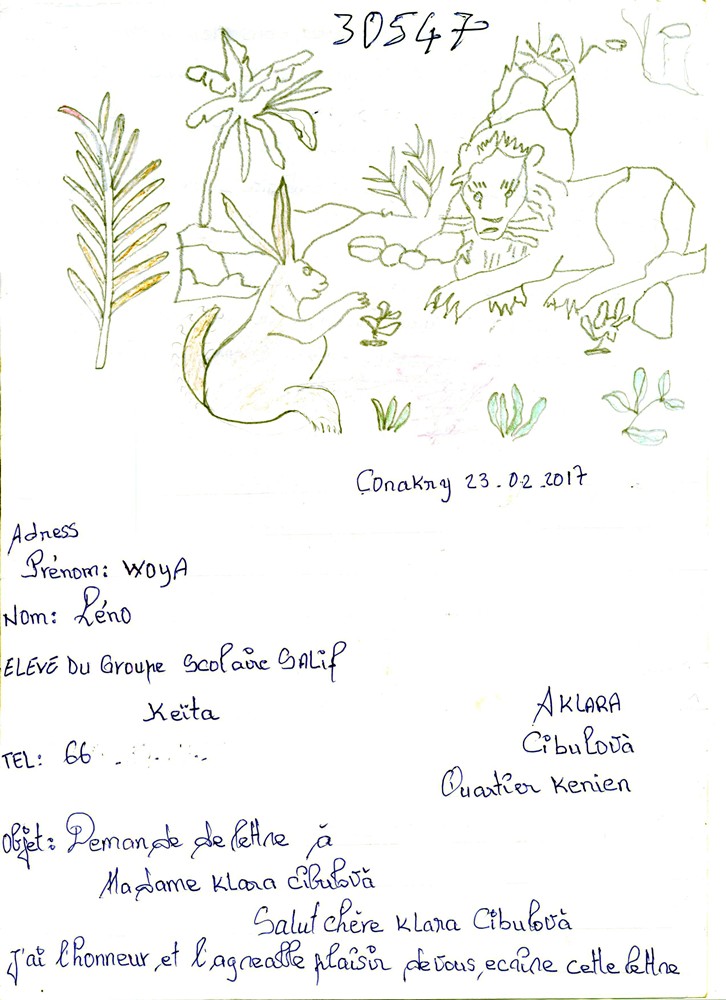 30547
Conakry 23.02.2017
Adress
Prénom: WOYA
Nom: Léno
ELEVE Du Groupe Scolaire SALIF
Keïta
TEL: 66
AKLARA
Cibulovà
Quartier Kenien
Objet: Demande de lettre à
Madame Klara Cibulovà
Salut chère Klara Cibulovà
J'ai l'honneur, et l'agreable plaisir de vous, ecrire cette lettre